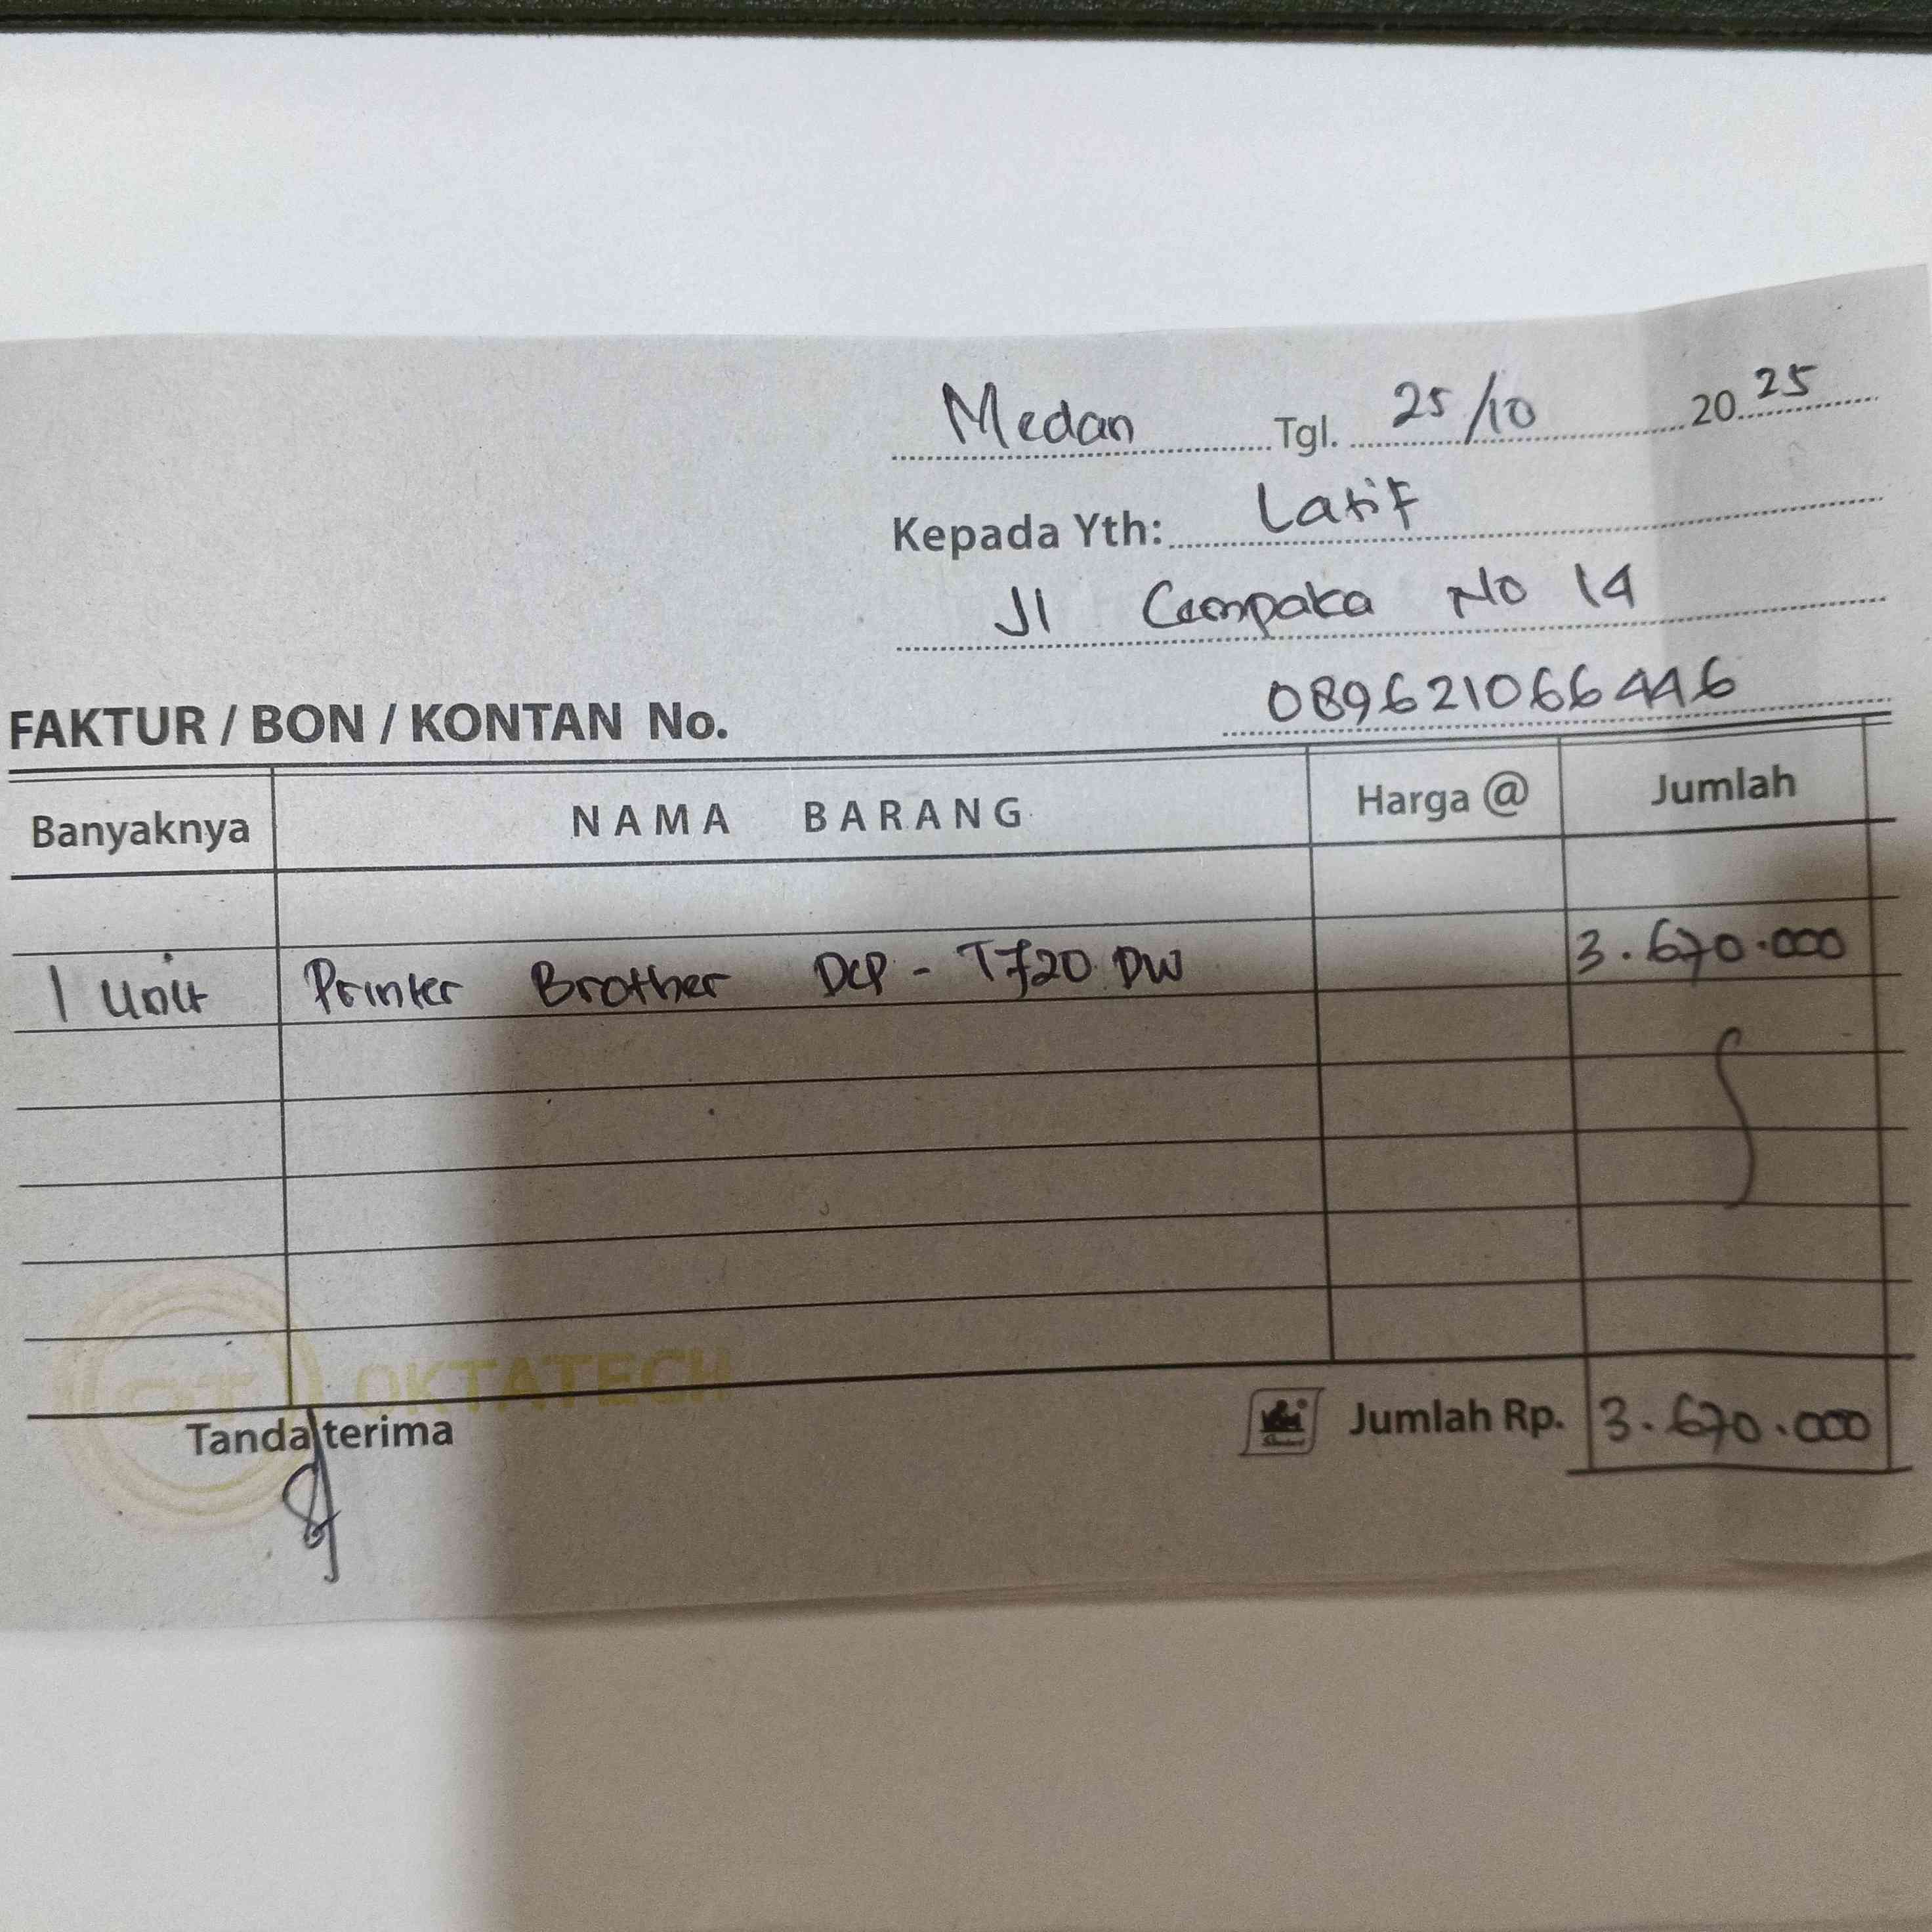 Medan Tgl. 25/10 2025
Kepada Yth: Latif
Jl Cempaka No 14
089621066446
FAKTUR / BON / KONTAN No.
Banyaknya NAMA BARANG Harga @ Jumlah
1 Unit Printer Brother DCP - T720 DW 3.670.000
OT OKTATECH
Tanda terima Jumlah Rp. 3.670.000